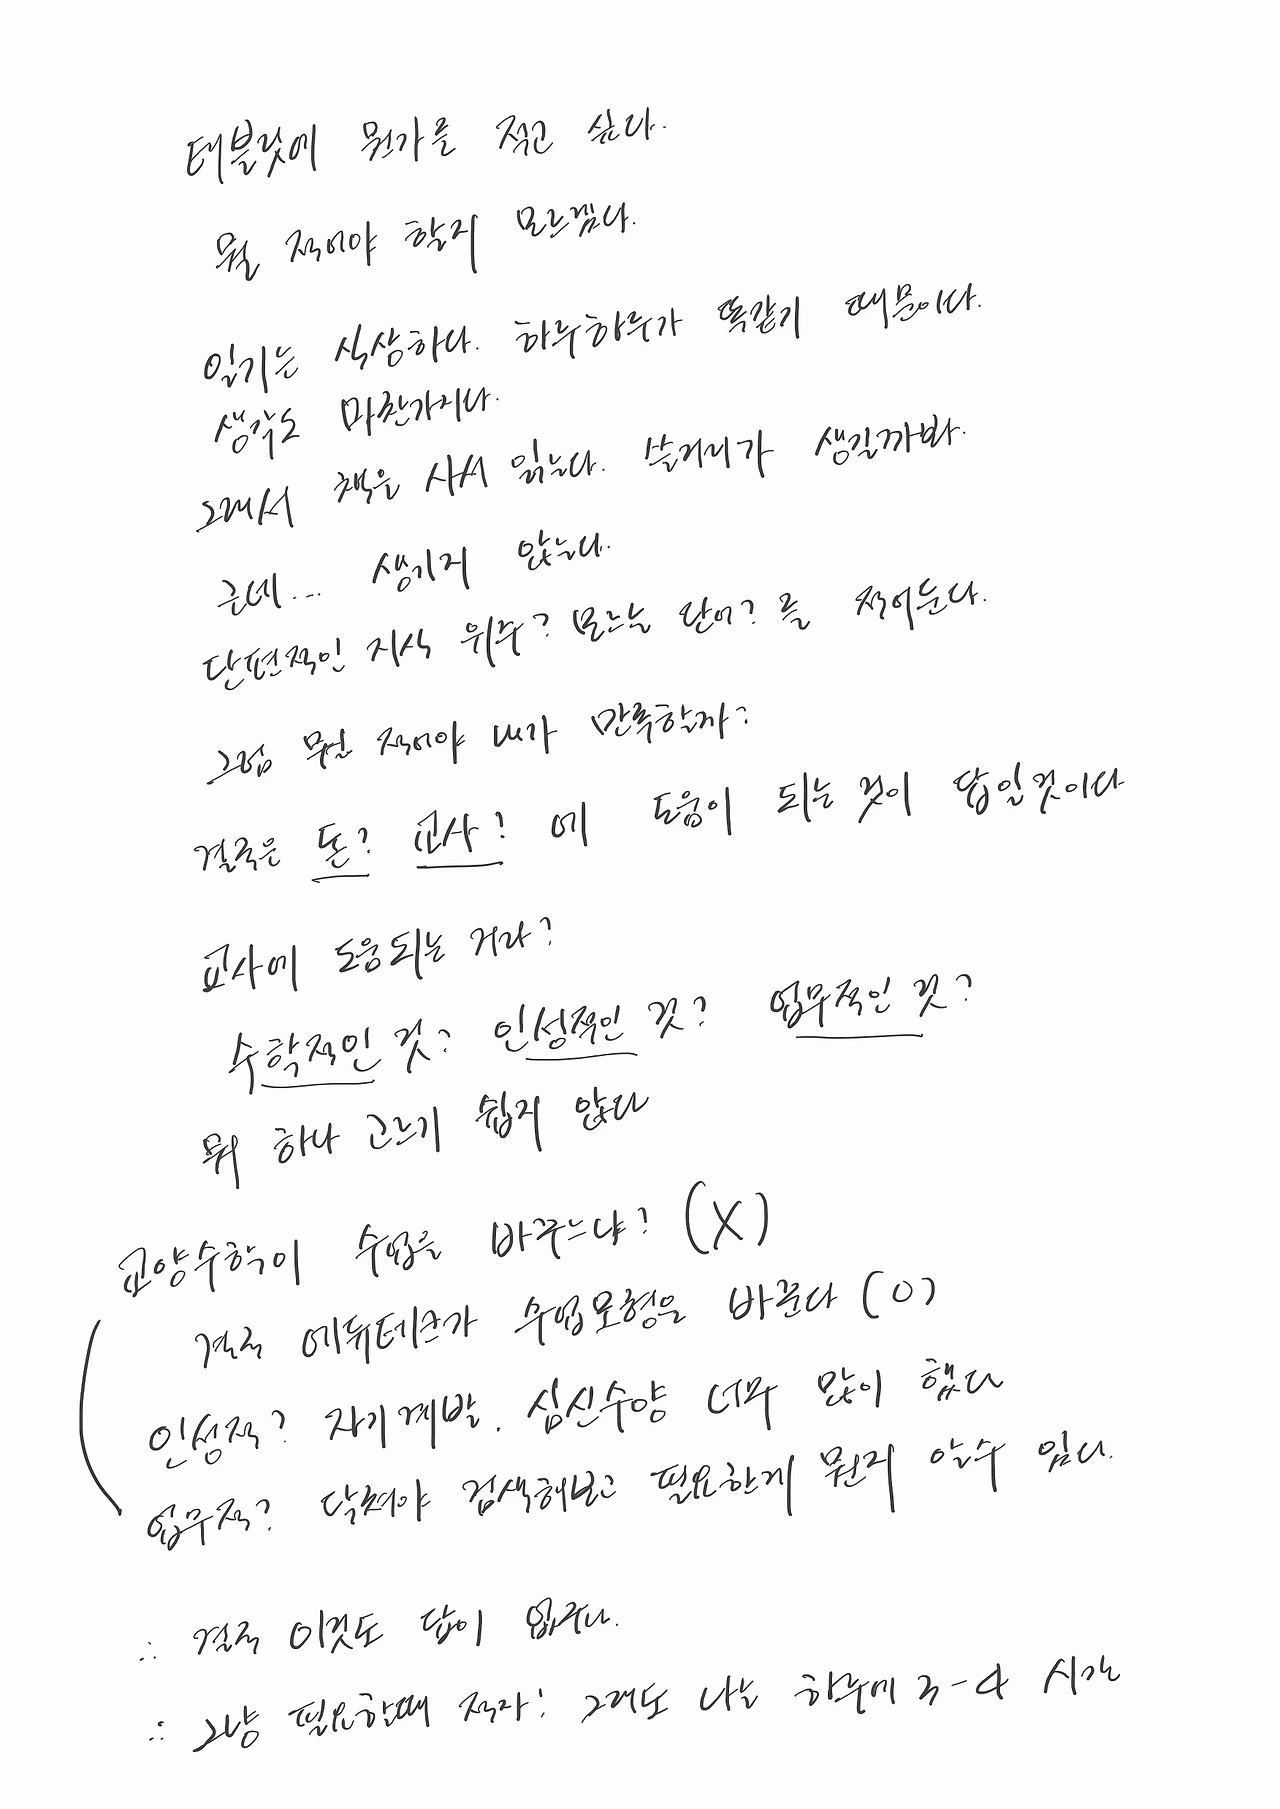 테블릿에 뭔가를 적고 싶다.
뭘 적어야 할지 모르겠다.
일기는 식상하다. 하루하루가 똑같기 때문이다.
생각도 마찬가지다.
그래서 책을 사서 읽는다. 쓸거리가 생길까봐.
근데... 생기지 않는다.
단편적인 지식 위주? 모르는 단어? 를 적어둔다.
그럼 뭘 적어야 내가 만족할까?
결국은 돈? 교사? 에 도움이 되는 것이 답일것이다
교사에 도움되는 거라?
수학적인 것? 인성적인 것? 업무적인 것?
뭐 하나 고르기 쉽지 않다
교양수학이 수업을 바꾸느냐? (X)
결국 에듀테크가 수업모형을 바꾼다 (O)
인성적? 자기계발. 심신수양 너무 많이 했다
업무적? 닥쳐야 검색해보고 필요한게 뭔지 알수 있다.
∴ 결국 이것도 답이 없구나.
∴ 그냥 필요할때 적자! 그래도 나는 하루에 3-4 시간